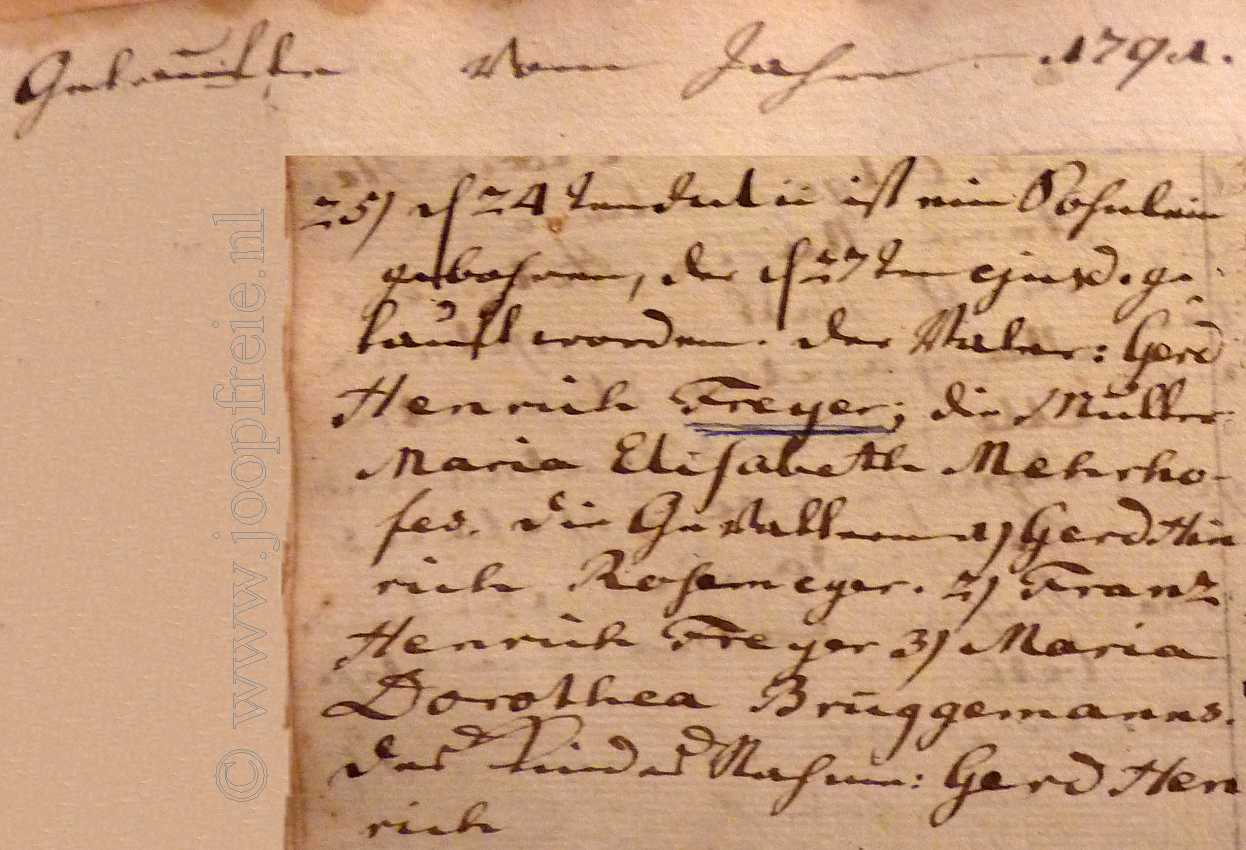 Getaufte vom Jahre 1791.
25) d 24ten Julii ist ein Söhnlein
gebohren, der d 27ten ejusd. ge
tauft worden. der Vater: Gerd
Henrich Freyer; die Mutter
Maria Elisabeth Mehrho-
fes. die Gevattern 1) Gerd Hin
rich Rosemeyer. 2) Franz
Henrich Freyer 3) Maria
Dorothea Brüggemanns.
des Kindes Nahme: Gerd Hen
rich
© www.joopfreie.nl